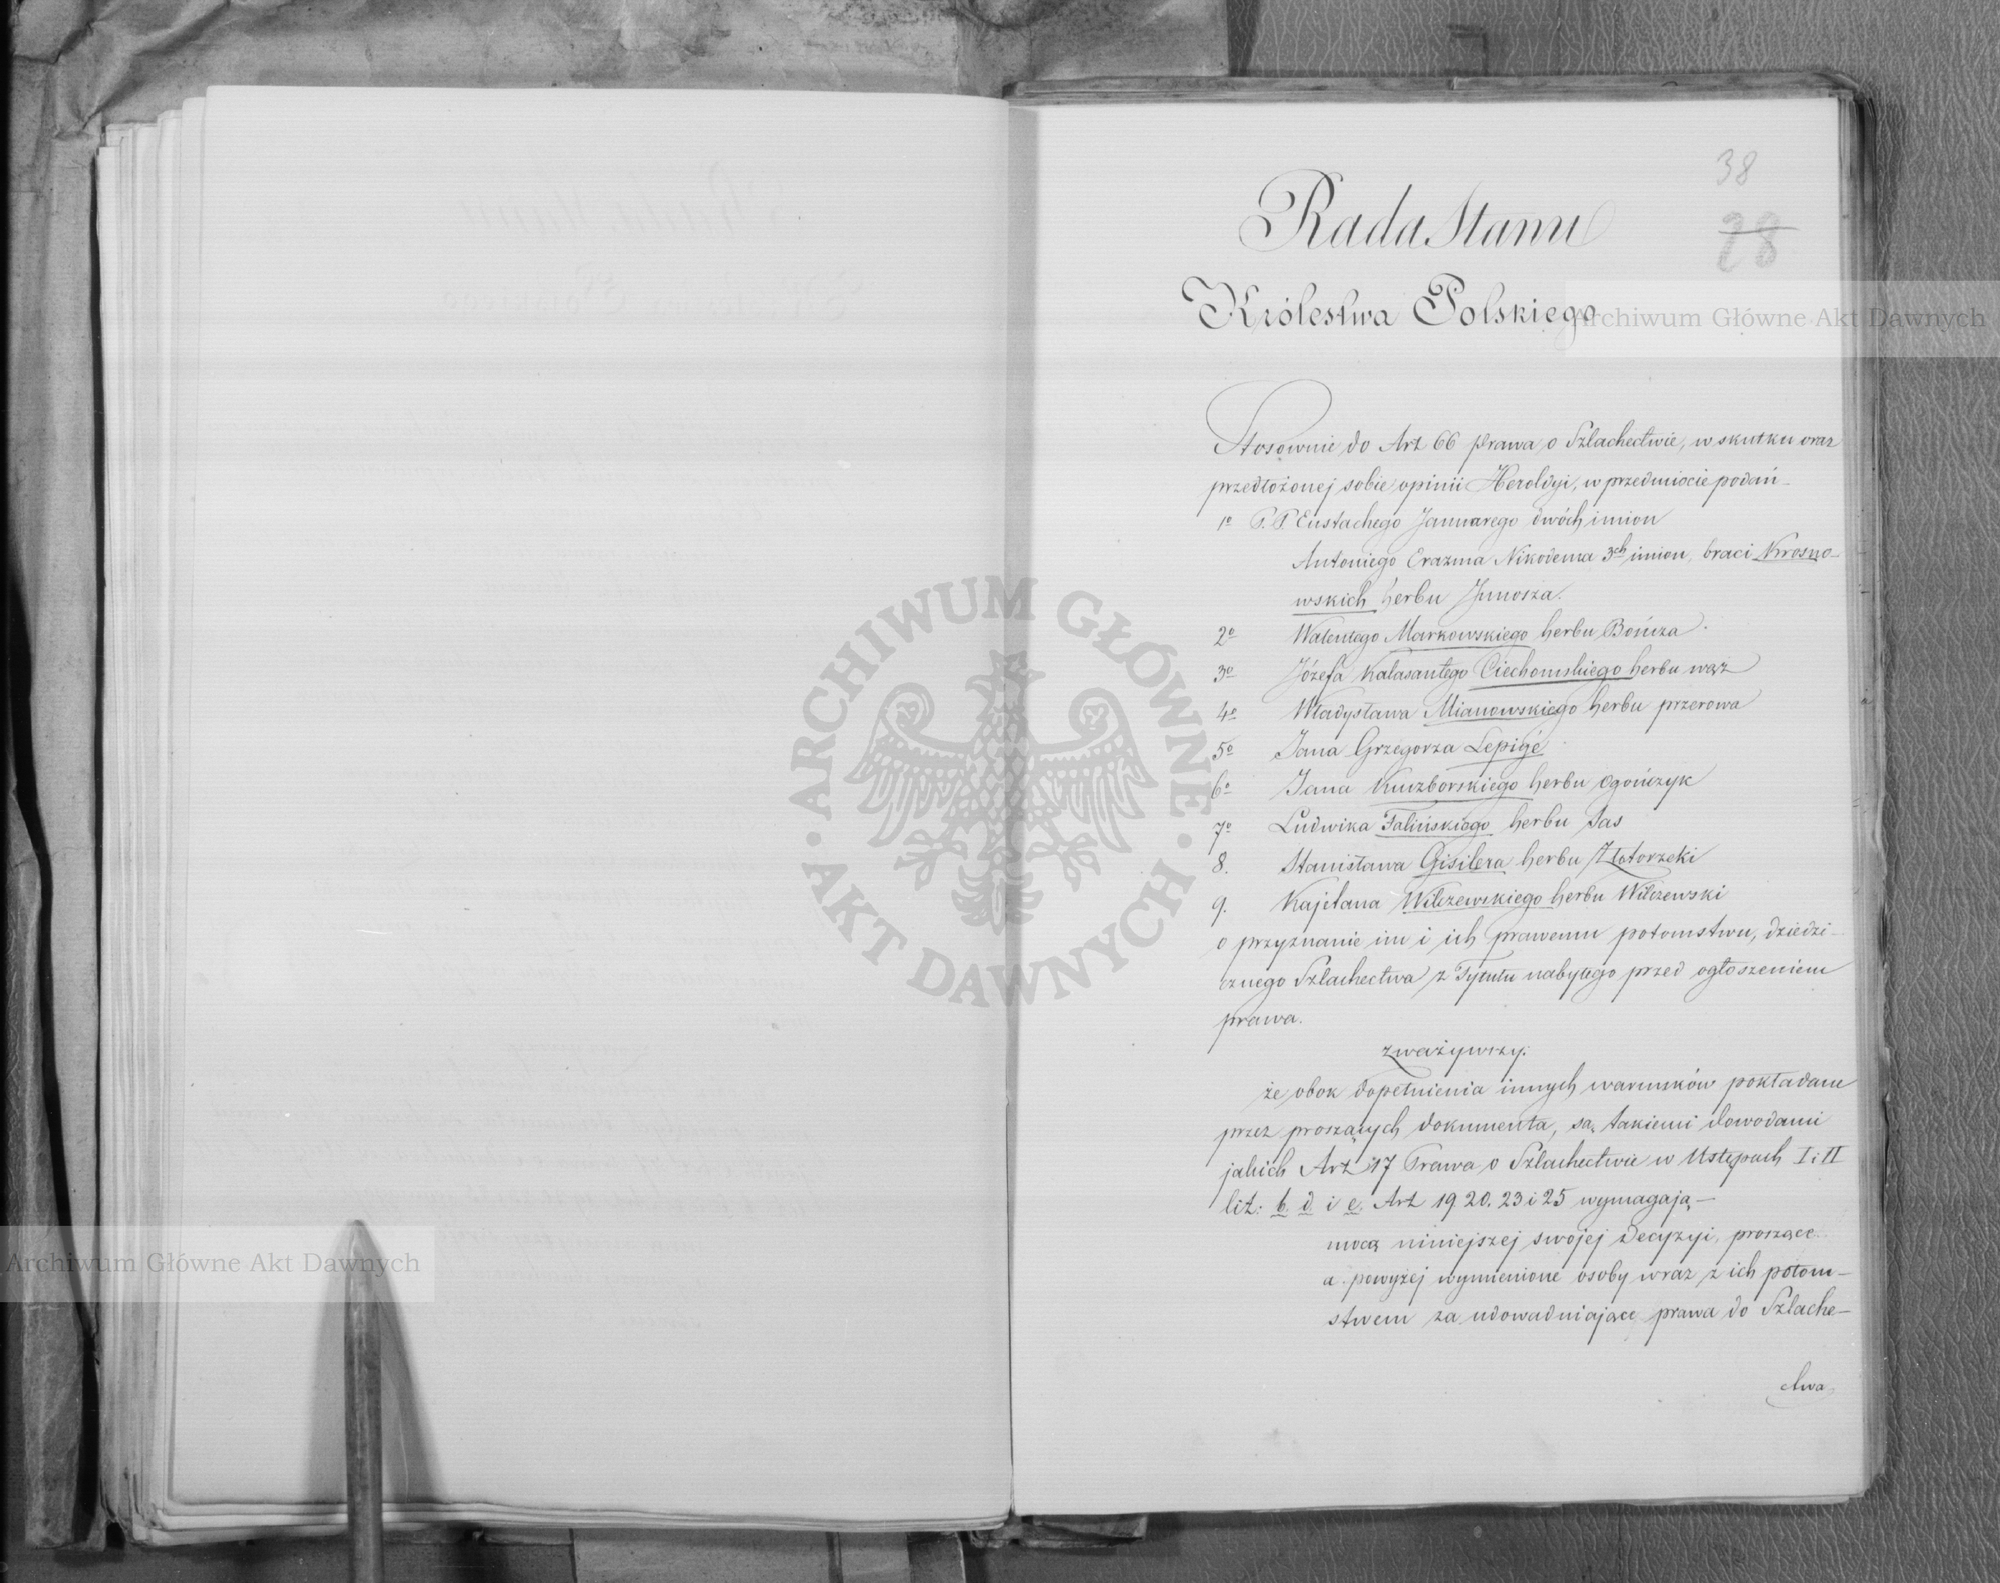 38
28
Rada Stanu
Królestwa Polskiego
Archiwum Główne Akt Dawnych
Stosownie do Art 66 prawa o Szlachectwie, w skutku oraz
przedłożonej sobie opinii Heroldyi, w przedmiocie podań –
1o P.P. Eustachego Januarego dwóch imion
Antoniego Erazma Nikodema 3ch imion, braci Krosno-
wskich herbu Junosza.
2o Walentego Markowskiego herbu Bończa.
3o Józefa Kalasantego Ciechomskiego herbu wąż
4o Władysława Mianowskiego herbu przerowa
5o Jana Grzegorza Lepigé
6o Jana Kuczborskiego herbu Ogończyk
7o Ludwika Falińskiego herbu Sas
8. Stanisława Gisilera herbu Złotorzeki
9. Kajetana Wilczewskiego herbu Wilczewski
o przyznanie im i ich prawemu potomstwu, dziedzi-
cznego Szlachectwa z Tytułu nabytego przed ogłoszeniem
prawa.
zważywszy:
że obok dopełnienia innych warunków pokładane
przez proszących dokumenta, są takiemi dowodami
jakich Art 17 Prawa o Szlachectwie w Ustępach I i II
lit: b. d. i e. Art 19 20. 23 i 25 wymagają –
mocą niniejszej swojej Decyzyi, proszące
a powyżej wymienione osoby wraz z ich potom-
stwem za udowadniające prawa do Szlache-
ctwa
ARCHIWUM GŁÓWNE
· AKT DAWNYCH ·
Archiwum Główne Akt Dawnych